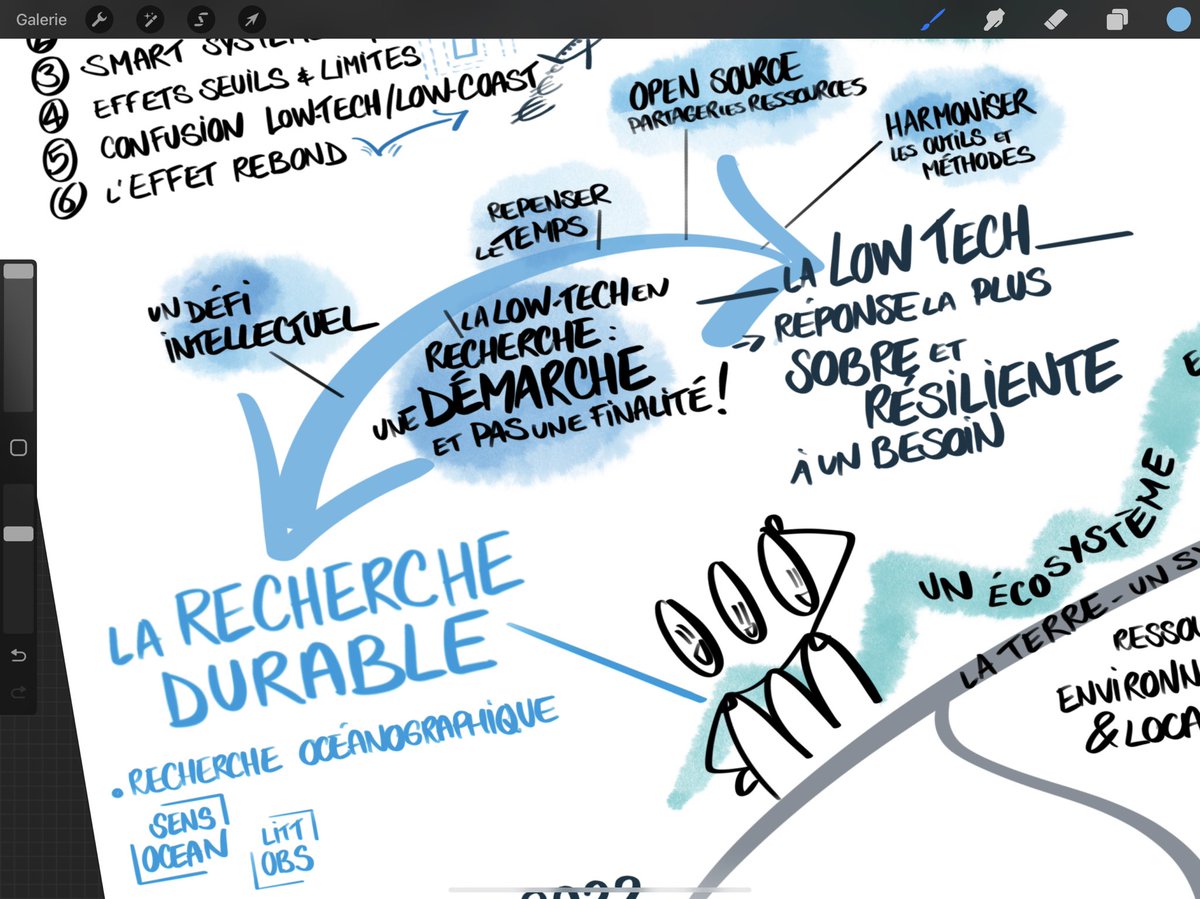 Galerie
③ SMART SYSTEMS
④ EFFETS SEUILS & LIMITES
⑤ CONFUSION LOW-TECH/LOW-COAST
⑥ L'EFFET REBOND
€
OPEN SOURCE
PARTAGER LES RESSOURCES
HARMONISER
LES OUTILS ET
MÉTHODES
REPENSER
LE TEMPS
UN DÉFI
INTELLECTUEL
LA LOW-TECH EN
RECHERCHE :
UNE DÉMARCHE
ET PAS UNE FINALITÉ !
LA LOW TECH
RÉPONSE LA PLUS
SOBRE ET
RÉSILIENTE
À UN BESOIN
LA RECHERCHE
DURABLE
• RECHERCHE OCÉANOGRAPHIQUE
SENS
OCEAN
LITT
OBS
UN ÉCOSYSTÈME
LA TERRE - UN
RESSOU
ENVIRONN
& LOCA